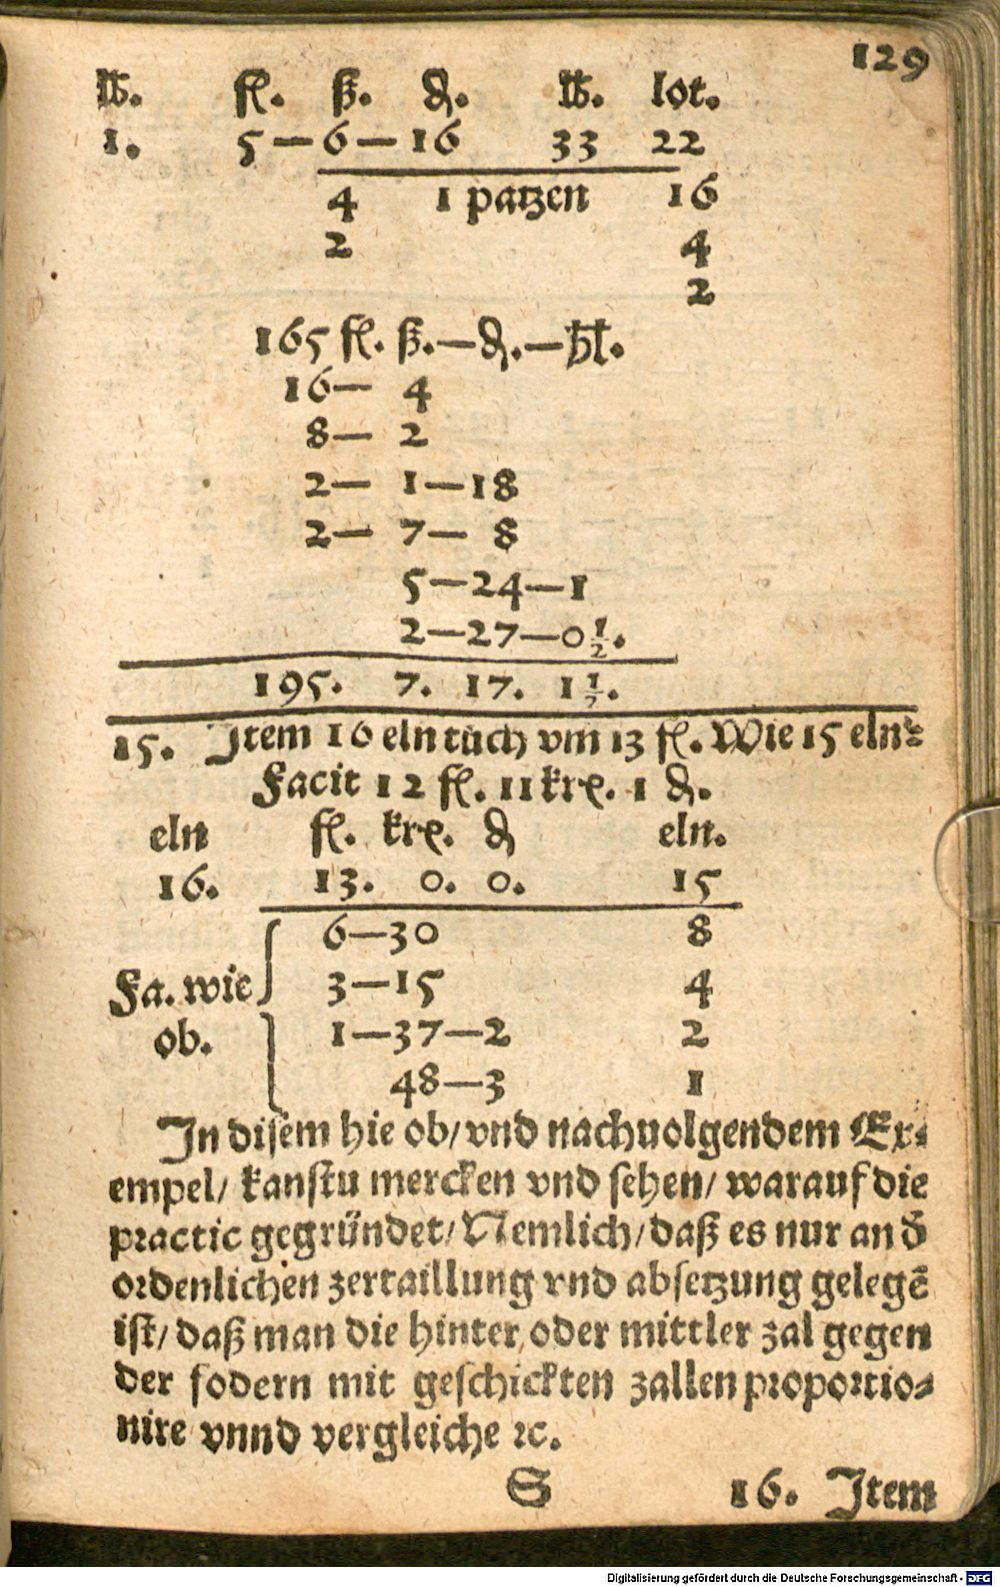 129
℔. fl. ß. ₰. ℔. lot.
1. 5—6—16 33 22
4 1 patzen 16
2 4
2
165 fl. ß.—₰.—hl.
16— 4
8— 2
2— 1—18
2— 7— 8
5—24—1
2—27—0 1/2.
195. 7. 17. 1 1/2.
15. Item 16 eln tuch vm 13 fl. Wie 15 eln:
Facit 12 fl. 11 krę. 1 ₰.
eln fl. krę. ₰ eln.
16. 13. 0. 0. 15
6—30 8
Fa. wie 3—15 4
ob. 1—37—2 2
48—3 1
In disem hie ob/ vnd nachuolgendem Ex⸗
empel/ kanstu mercken vnd sehen/ warauf die
practic gegründet/ Nemlich/ daß es nur an d̄
ordenlichen zertaillung vnd absetzung gelegē
ist/ daß man die hinter oder mittler zal gegen
der fodern mit geschickten zallen proportio⸗
nire vnnd vergleiche ꝛc.
S 16. Item
Digitalisierung gefördert durch die Deutsche Forschungsgemeinschaft - DFG